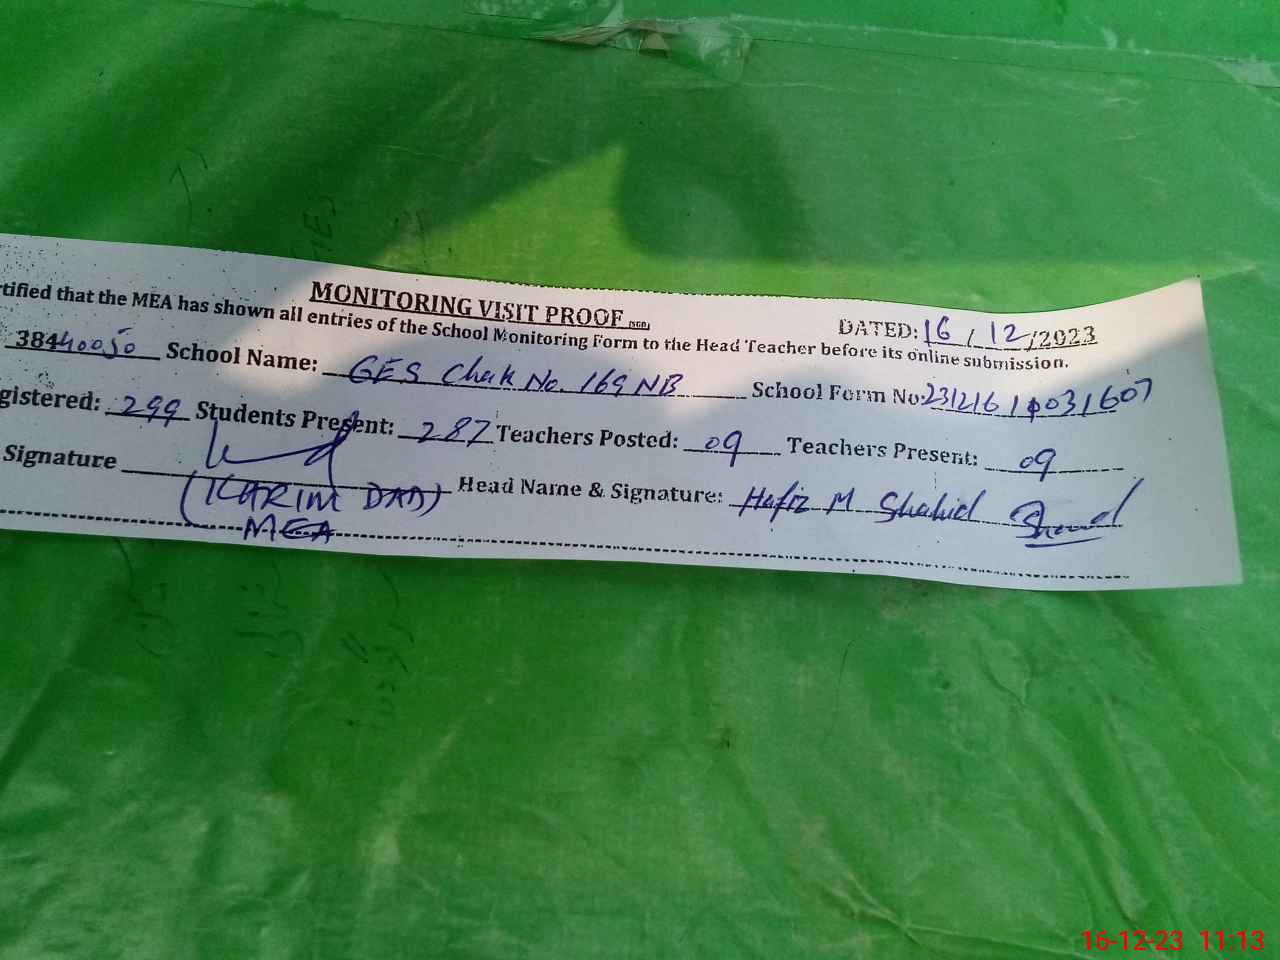 MONITORING VISIT PROOF (SGD)
DATED: 16 / 12 /2023
rtified that the MEA has shown all entries of the School Monitoring Form to the Head Teacher before its online submission.
38440050 School Name: GES Chak No. 169 NB School Form No: 231216 1 031607
gistered: 299 Students Present: 287 Teachers Posted: 09 Teachers Present: 09
Signature Head Name & Signature: Hafiz M Shahid
(KARIM DAD)
MEA
16-12-23 11:13